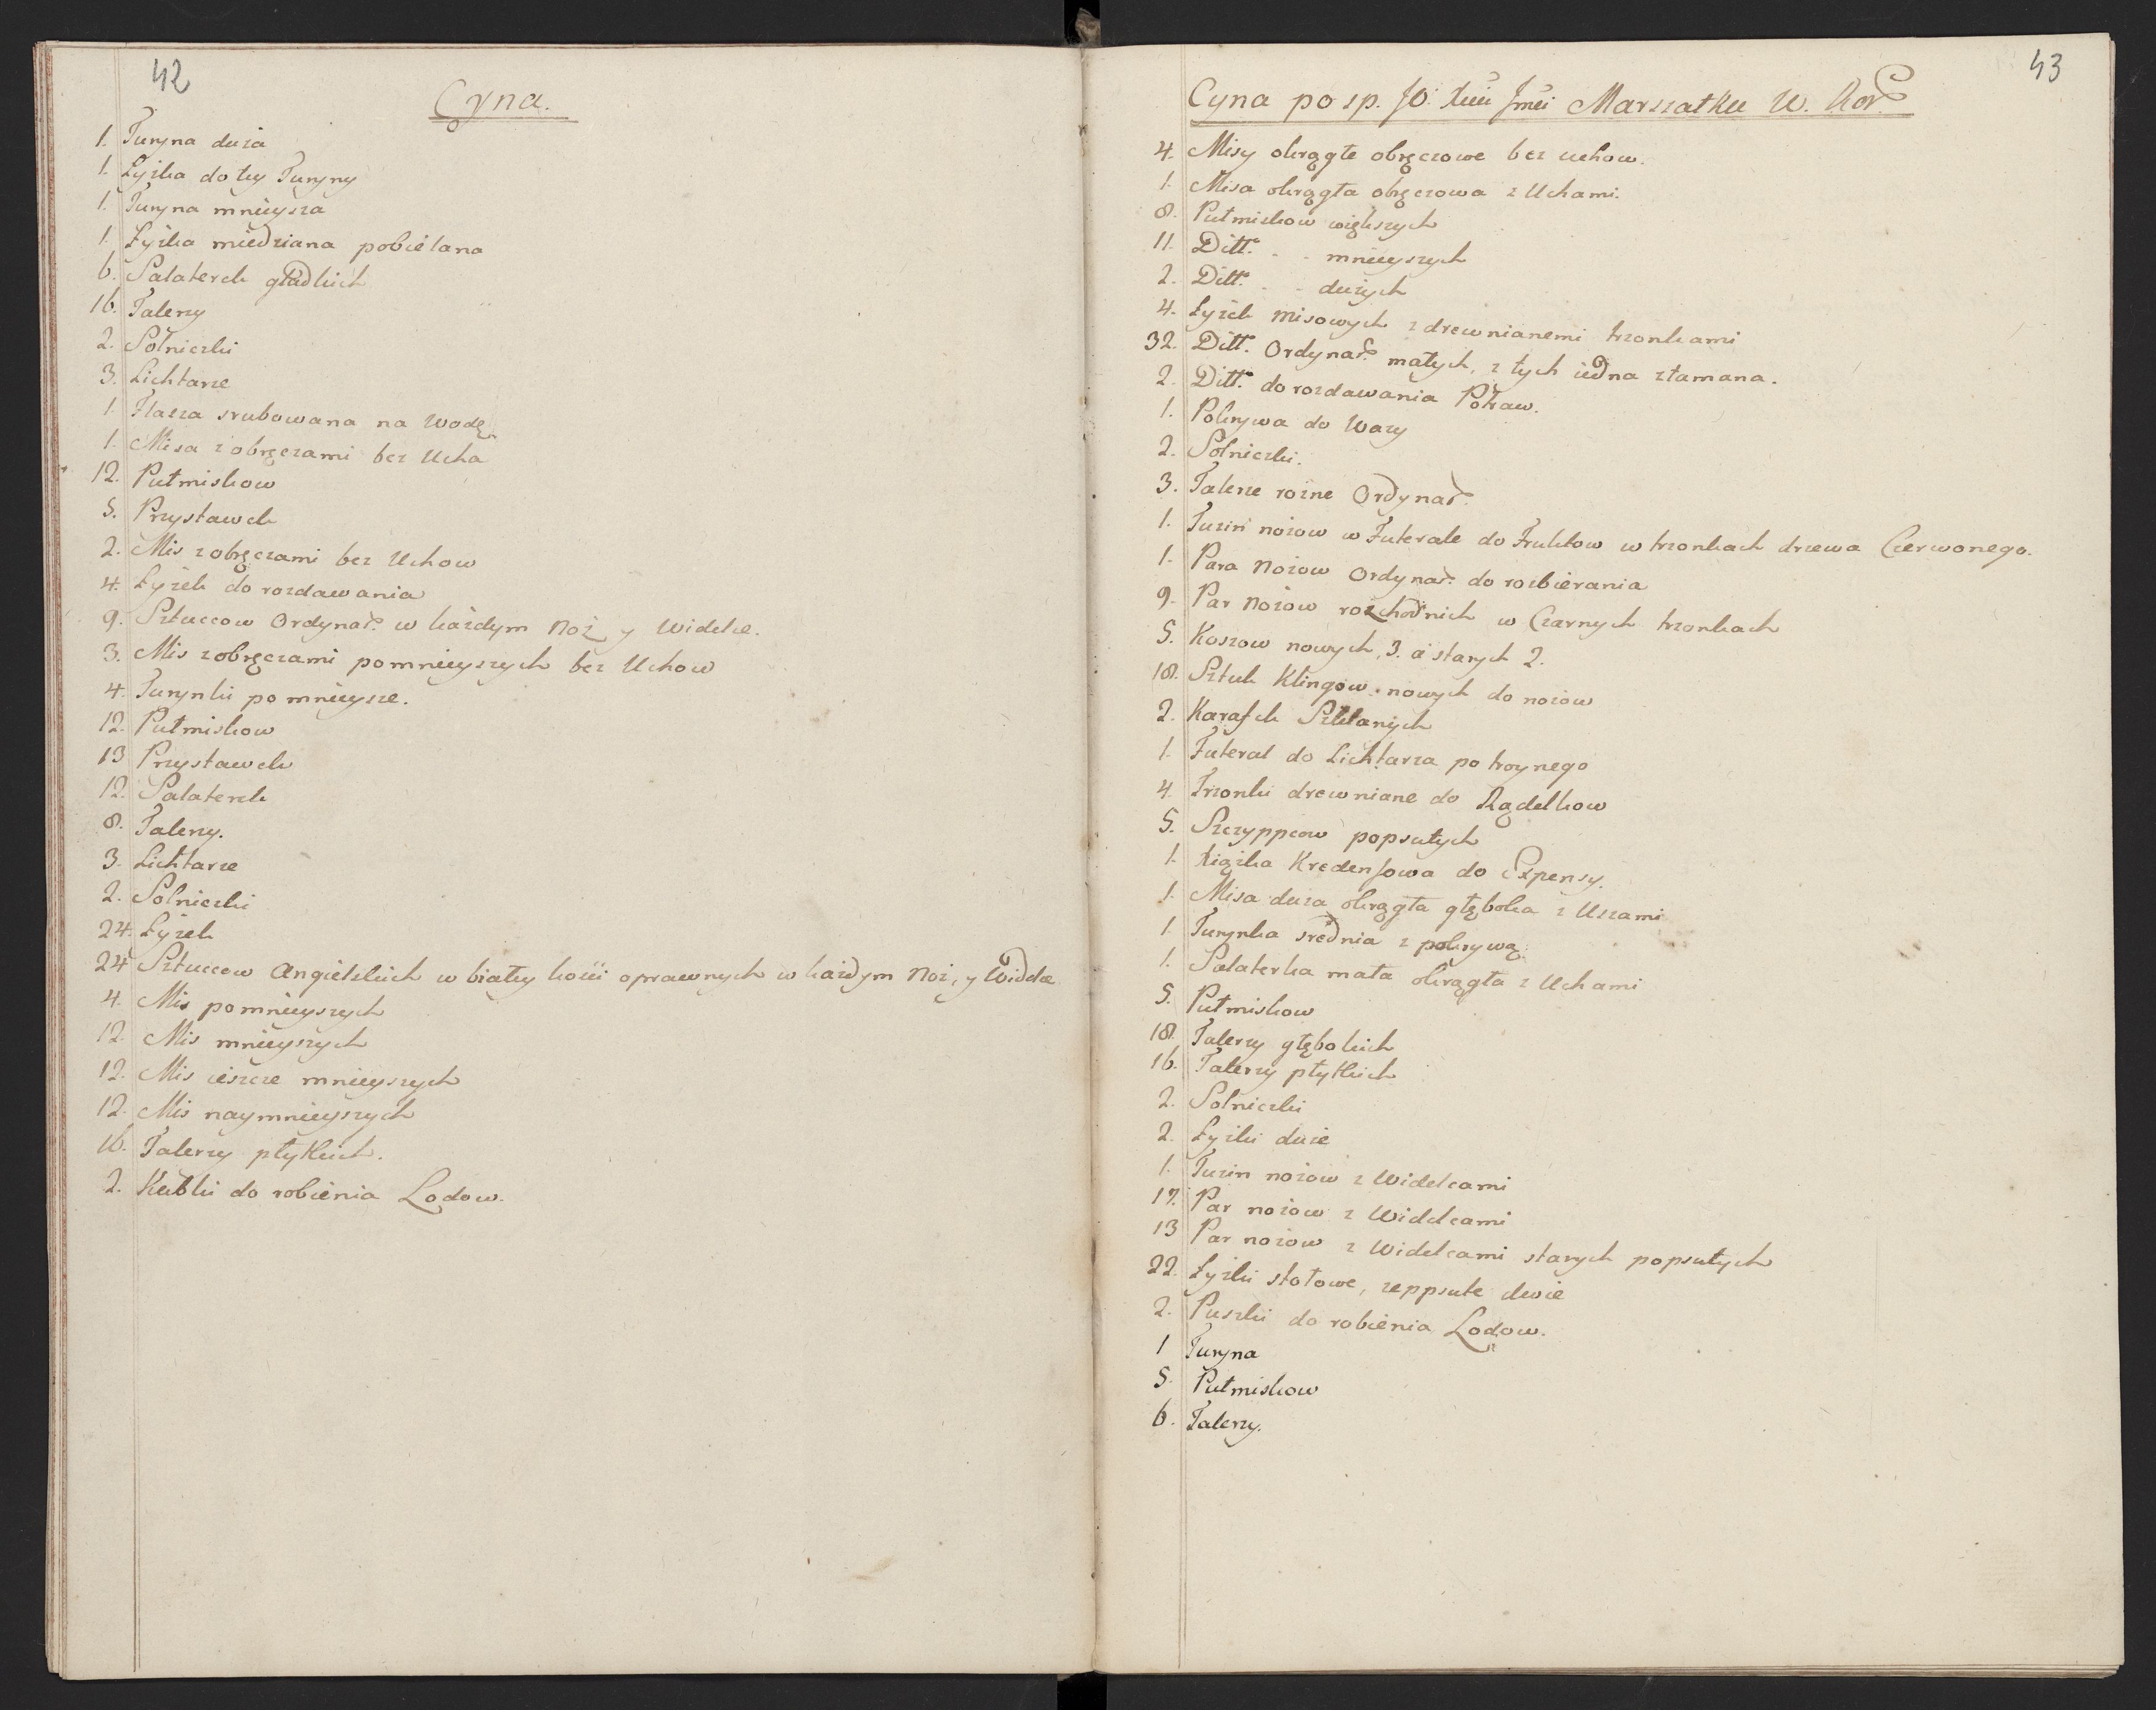 42
Cyna.
1. Turyna duża
1. Łyżka do tey Turyny
1. Turyna mnieysza
1. Łyżka miedziana pobielana
6. Salaterek gładkich
16. Talerzy
2. Solniczki
3. Lichtarze
1. Flasza srubowana na Wodę
1. Misa z obręczami bez Ucha
12. Pułmiskow
5. Przystawek
2. Mis z obręczami bez Uchow
4. Łyżek do rozdawania
9. Sztuccow Ordynar. w każdym Noż y Widelce.
3. Mis z obręczami pomnieyszych bez Uchow
4. Turynki pomnieysze.
12. Pułmiskow
13 Przystawek
12. Salaterek
8. Talerzy.
3. Lichtarze
2. Solniczki
24. Łyżek
24 Sztuccow Angielskich w białey kości oprawnych w każdym Noż, y Widelce
4. Mis pomnieyszych
12. Mis mnieyszych
12. Mis ieszcze mnieyszych
12. Mis naymnieyszych
16. Talerzy płytkich.
2. Kubki do robienia Lodow.
43
Cyna po sp. JO. Xciu Jmci Marszałku W. Kor.
4. Misy okrągłe obręczowe bez uchow.
1. Misa okrągła obręczowa z Uchami.
8. Pułmiskow większych
11. Ditt. - - mnieyszych
2. Ditt. - - dużych
4. Łyżek misowych z drewnianemi trzonkami
32. Ditt. Ordynar. małych, z tych iedna złamana.
2. Ditt. do rozdawania Potraw.
1. Pokrywa do Wazy
2. Solniczki.
3. Talerze rożne Ordynar.
1. Tuzin nożow w Futerale do Fruktow w trzonkach drzewa Czerwonego.
1. Para Nożow Ordynar. do rozbierania
9. Par Nożow rozchodnich w Czarnych trzonkach
5. Koszow nowych, 3. a starych 2.
18. Sztuk Klingow nowych do nożow
2. Karafek Szklanych
1. Futerał do Lichtarza potroynego
4. Trzonki drewniane do Rądelkow
5. Szczyppcow popsutych
1. Xiążka Kredensowa do Expensy.
1. Misa duża okrągła głęboka z Uszami
1. Turynka srednia z pokrywą.
1. Salaterka mała okrągła z Uchami
5. Pułmiskow
18. Talerzy głębokich
16. Talerzy płytkich
2. Solniczki
2. Łyżki duże
1. Tuzin nożow z Widelcami
17. Par nożow z Widelcami
13 Par nożow z Widelcami starych popsutych
22. Łyżki stołowe, zeppsute dwie
2. Puszki do robienia Lodow.
1 Turyna
5. Pułmiskow
6. Talerzy.